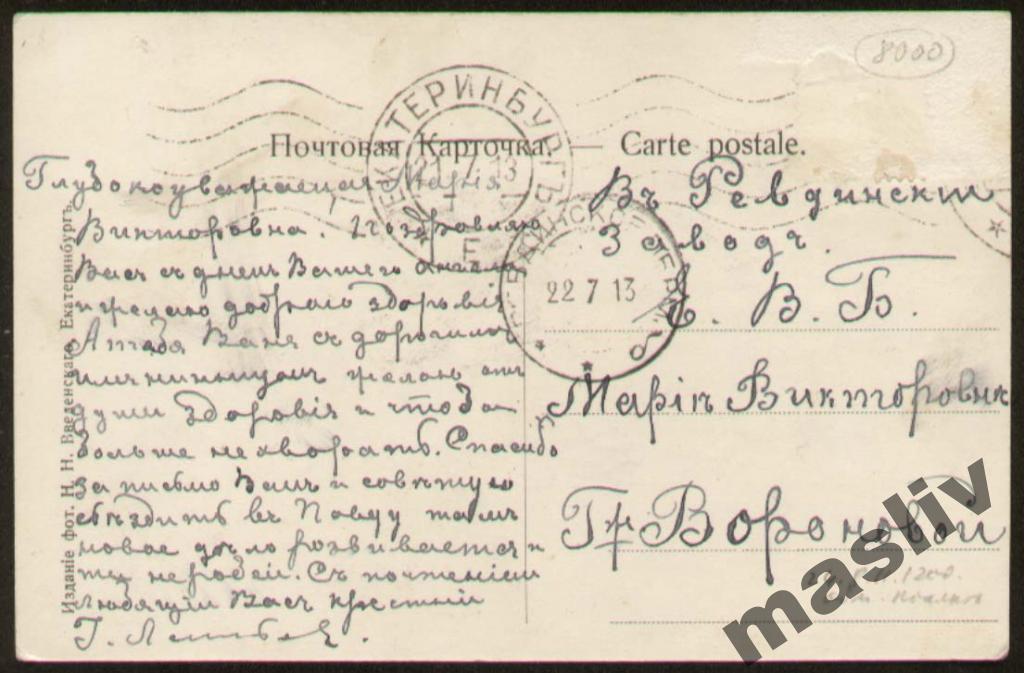 8000
ЕКАТЕРИНБУРГЪ
Почтовая Карточка. — Carte postale.
Глубокоуважаемая Марія
Викторовна. Поздравляю
Васъ съ днемъ Вашего Ангела
и желаю добраго здоровія
А тебя Ваня съ дорогимъ
имянинникомъ желаю отъ
души здоровія и чтоба
больше не хворать. Спасибо
за письмо Вамъ и совѣтую
съѣздить въ Поѣду тамъ
новое дѣло розвивается и
ты не робей. Съ почтеніемъ
любящій Васъ крестный
Г.
22 7 13
Въ Ревдинскій
Заводъ.
Е. В. Б.
Маріи Викторовнѣ
Г-жѣ Вороновой
Изданіе фот. Н. Н. Введенскаго, Екатеринбургъ.
masliv